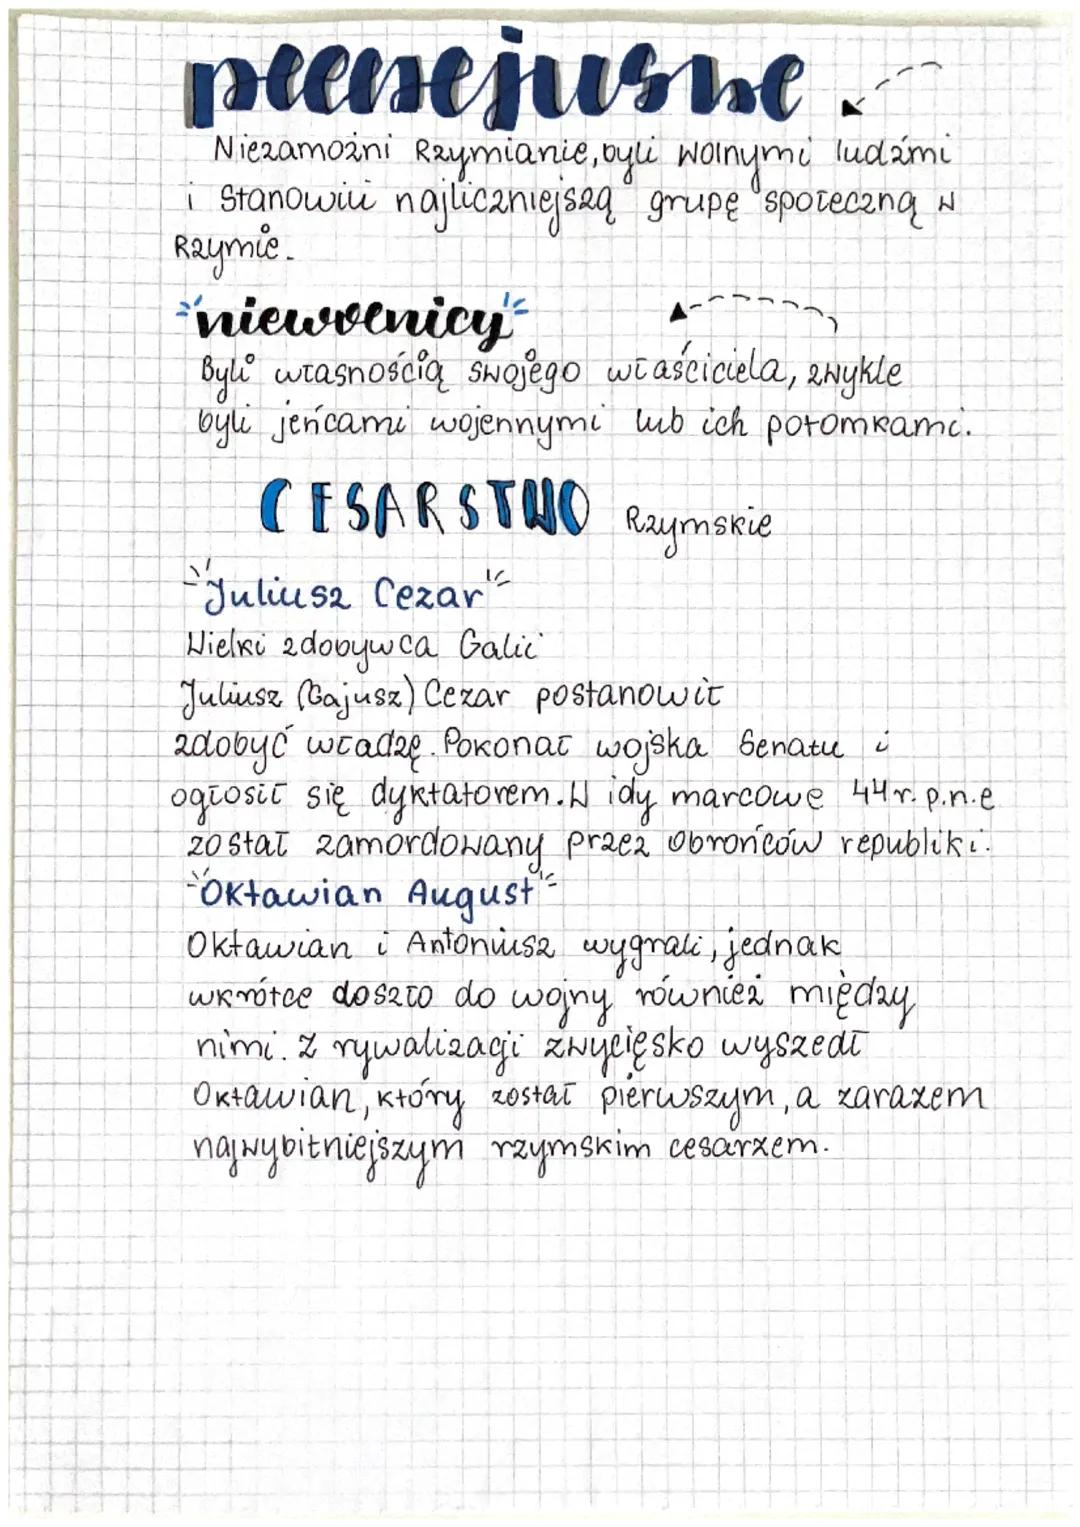 plebejusze
Niezamożni Rzymianie, byli wolnymi ludźmi
i stanowili najliczniejszą grupę społeczną w
Rzymie.
niewolnicy
Byli własnością swojego właściciela, zwykle
byli jeńcami wojennymi lub ich potomkami.
CESARSTWO Rzymskie
Juliusz Cezar
Wielki zdobywca Galii
Juliusz (Gajusz) Cezar postanowił
zdobyć władzę. Pokonał wojska Senatu i
ogłosił się dyktatorem. W idy marcowe 44 r. p.n.e
został zamordowany przez obrońców republiki.
Oktawian August
Oktawian i Antoniusz wygrali, jednak
wkrótce doszło do wojny również między
nimi. Z rywalizacji zwycięsko wyszedł
Oktawian, który został pierwszym, a zarazem
najwybitniejszym rzymskim cesarzem.